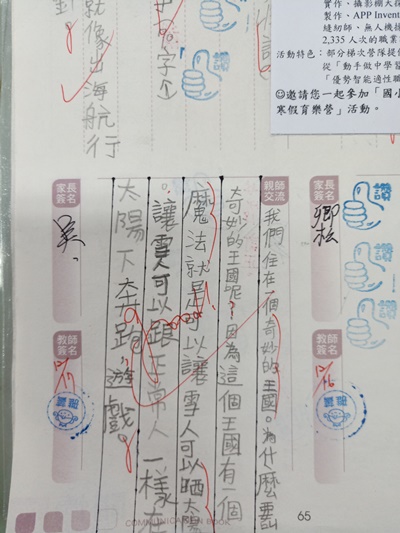 實作、攝影棚大探
製作、APP Invent
縫紉師、無人機操
2,335 人次的職業
活動特色：部分梯次營隊提供
從「動手做中學習
「優勢智能適性職
☺邀請您一起參加「國小
寒假育樂營」活動。
中
字
就像出海航行
家長簽名
讚
讚
讚
教師簽名
12/16
親師交流
我們住在一個奇妙的王國。為什麼要叫
奇妙的王國呢？因為這個王國有一個
魔法就是可以讓雪人可以晒太陽
。讓雪人可以跟正常人一樣在
太陽下奔跑，遊戲。
家長簽名
讚
教師簽名
12/17
COMMUNICATION BOOK
65